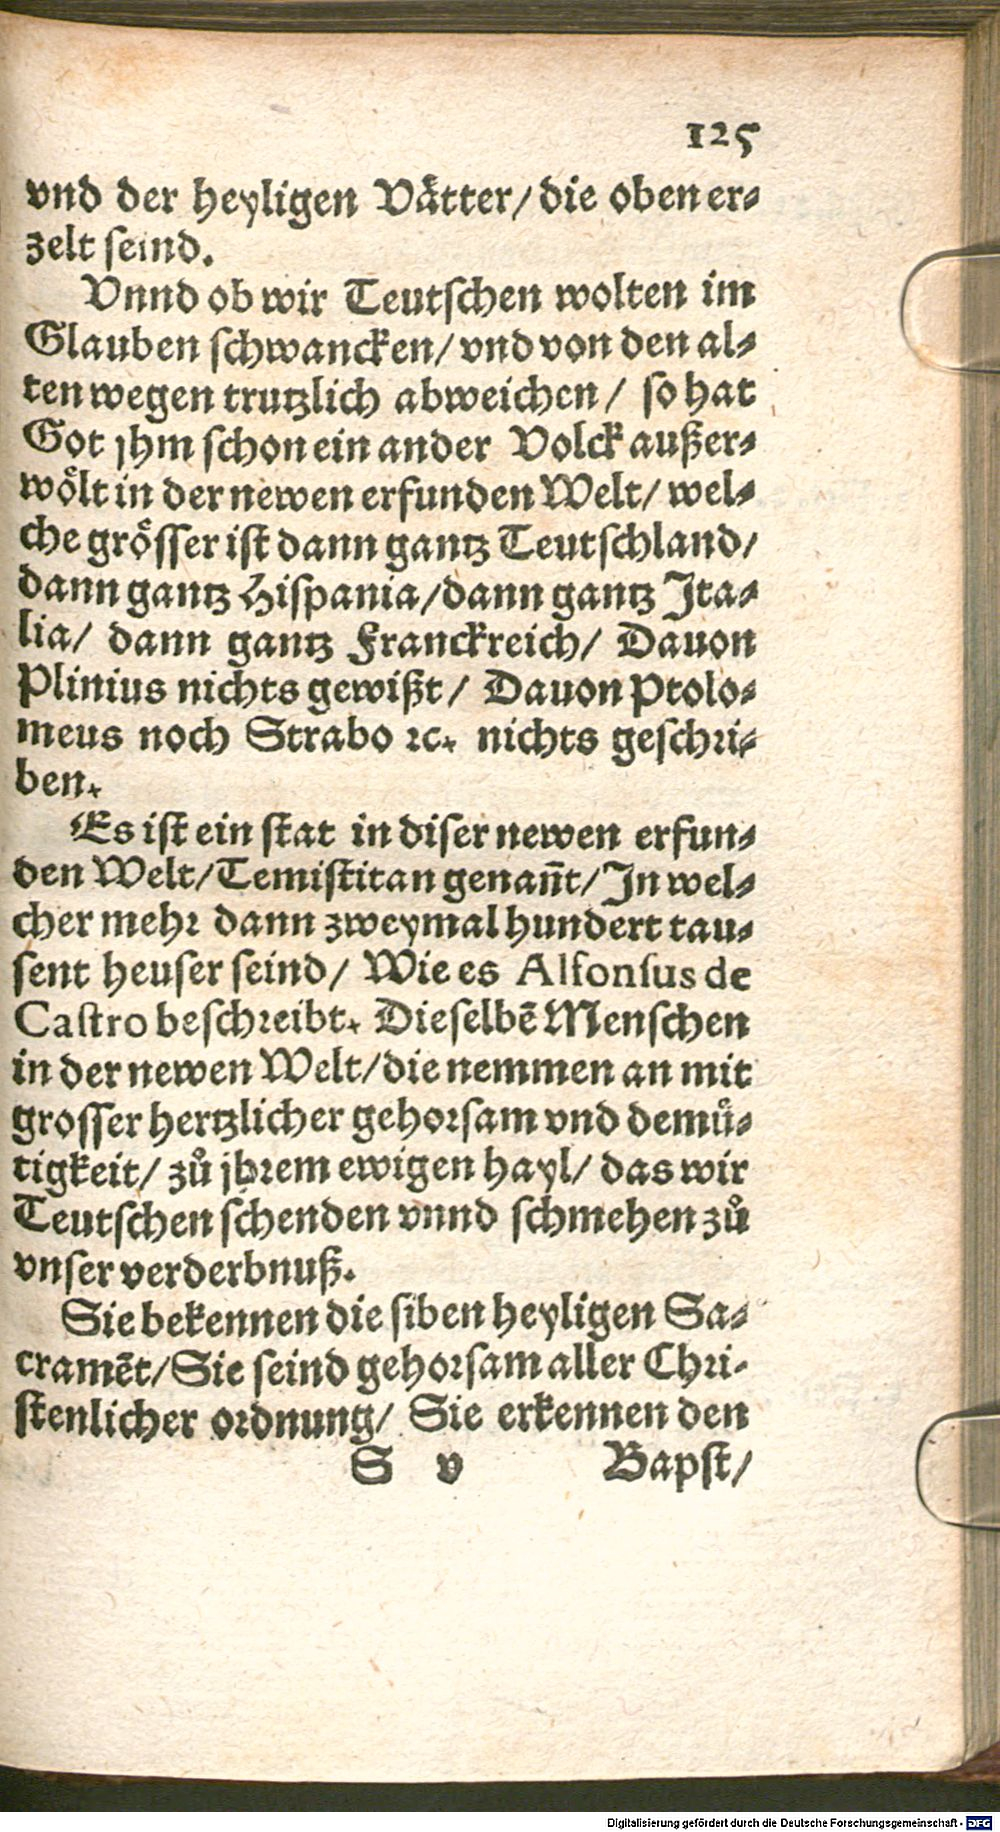 125
vnd der heyligen Vaͤtter/ die oben er⸗
zelt seind.
Vnnd ob wir Teutschen wolten im
Glauben schwancken/ vnd von den al⸗
ten wegen trutzlich abweichen/ so hat
Got jhm schon ein ander Volck außer⸗
woͤlt in der newen erfunden Welt/ wel⸗
che groͤsser ist dann gantz Teutschland/
dann gantz Hispania/ dann gantz Jta⸗
lia/ dann gantz Franckreich/ Dauon
Plinius nichts gewißt/ Dauon Ptolo⸗
meus noch Strabo ꝛc. nichts geschri⸗
ben.
Es ist ein stat in diser newen erfun⸗
den Welt/ Temistitan genañt/ Jn wel⸗
cher mehr dann zweymal hundert tau⸗
sent heuser seind/ Wie es Alfonsus de
Castro beschreibt. Dieselbẽ Menschen
in der newen Welt/ die nemmen an mit
grosser hertzlicher gehorsam vnd demuͤ⸗
tigkeit/ zuͦ jhrem ewigen hayl/ das wir
Teutschen schenden vnnd schmehen zuͦ
vnser verderbnuß.
Sie bekennen die siben heyligen Sa⸗
cramẽt/ Sie seind gehorsam aller Chri⸗
stenlicher ordnung/ Sie erkennen den
S v Bapst/
Digitalisierung gefördert durch die Deutsche Forschungsgemeinschaft - DFG